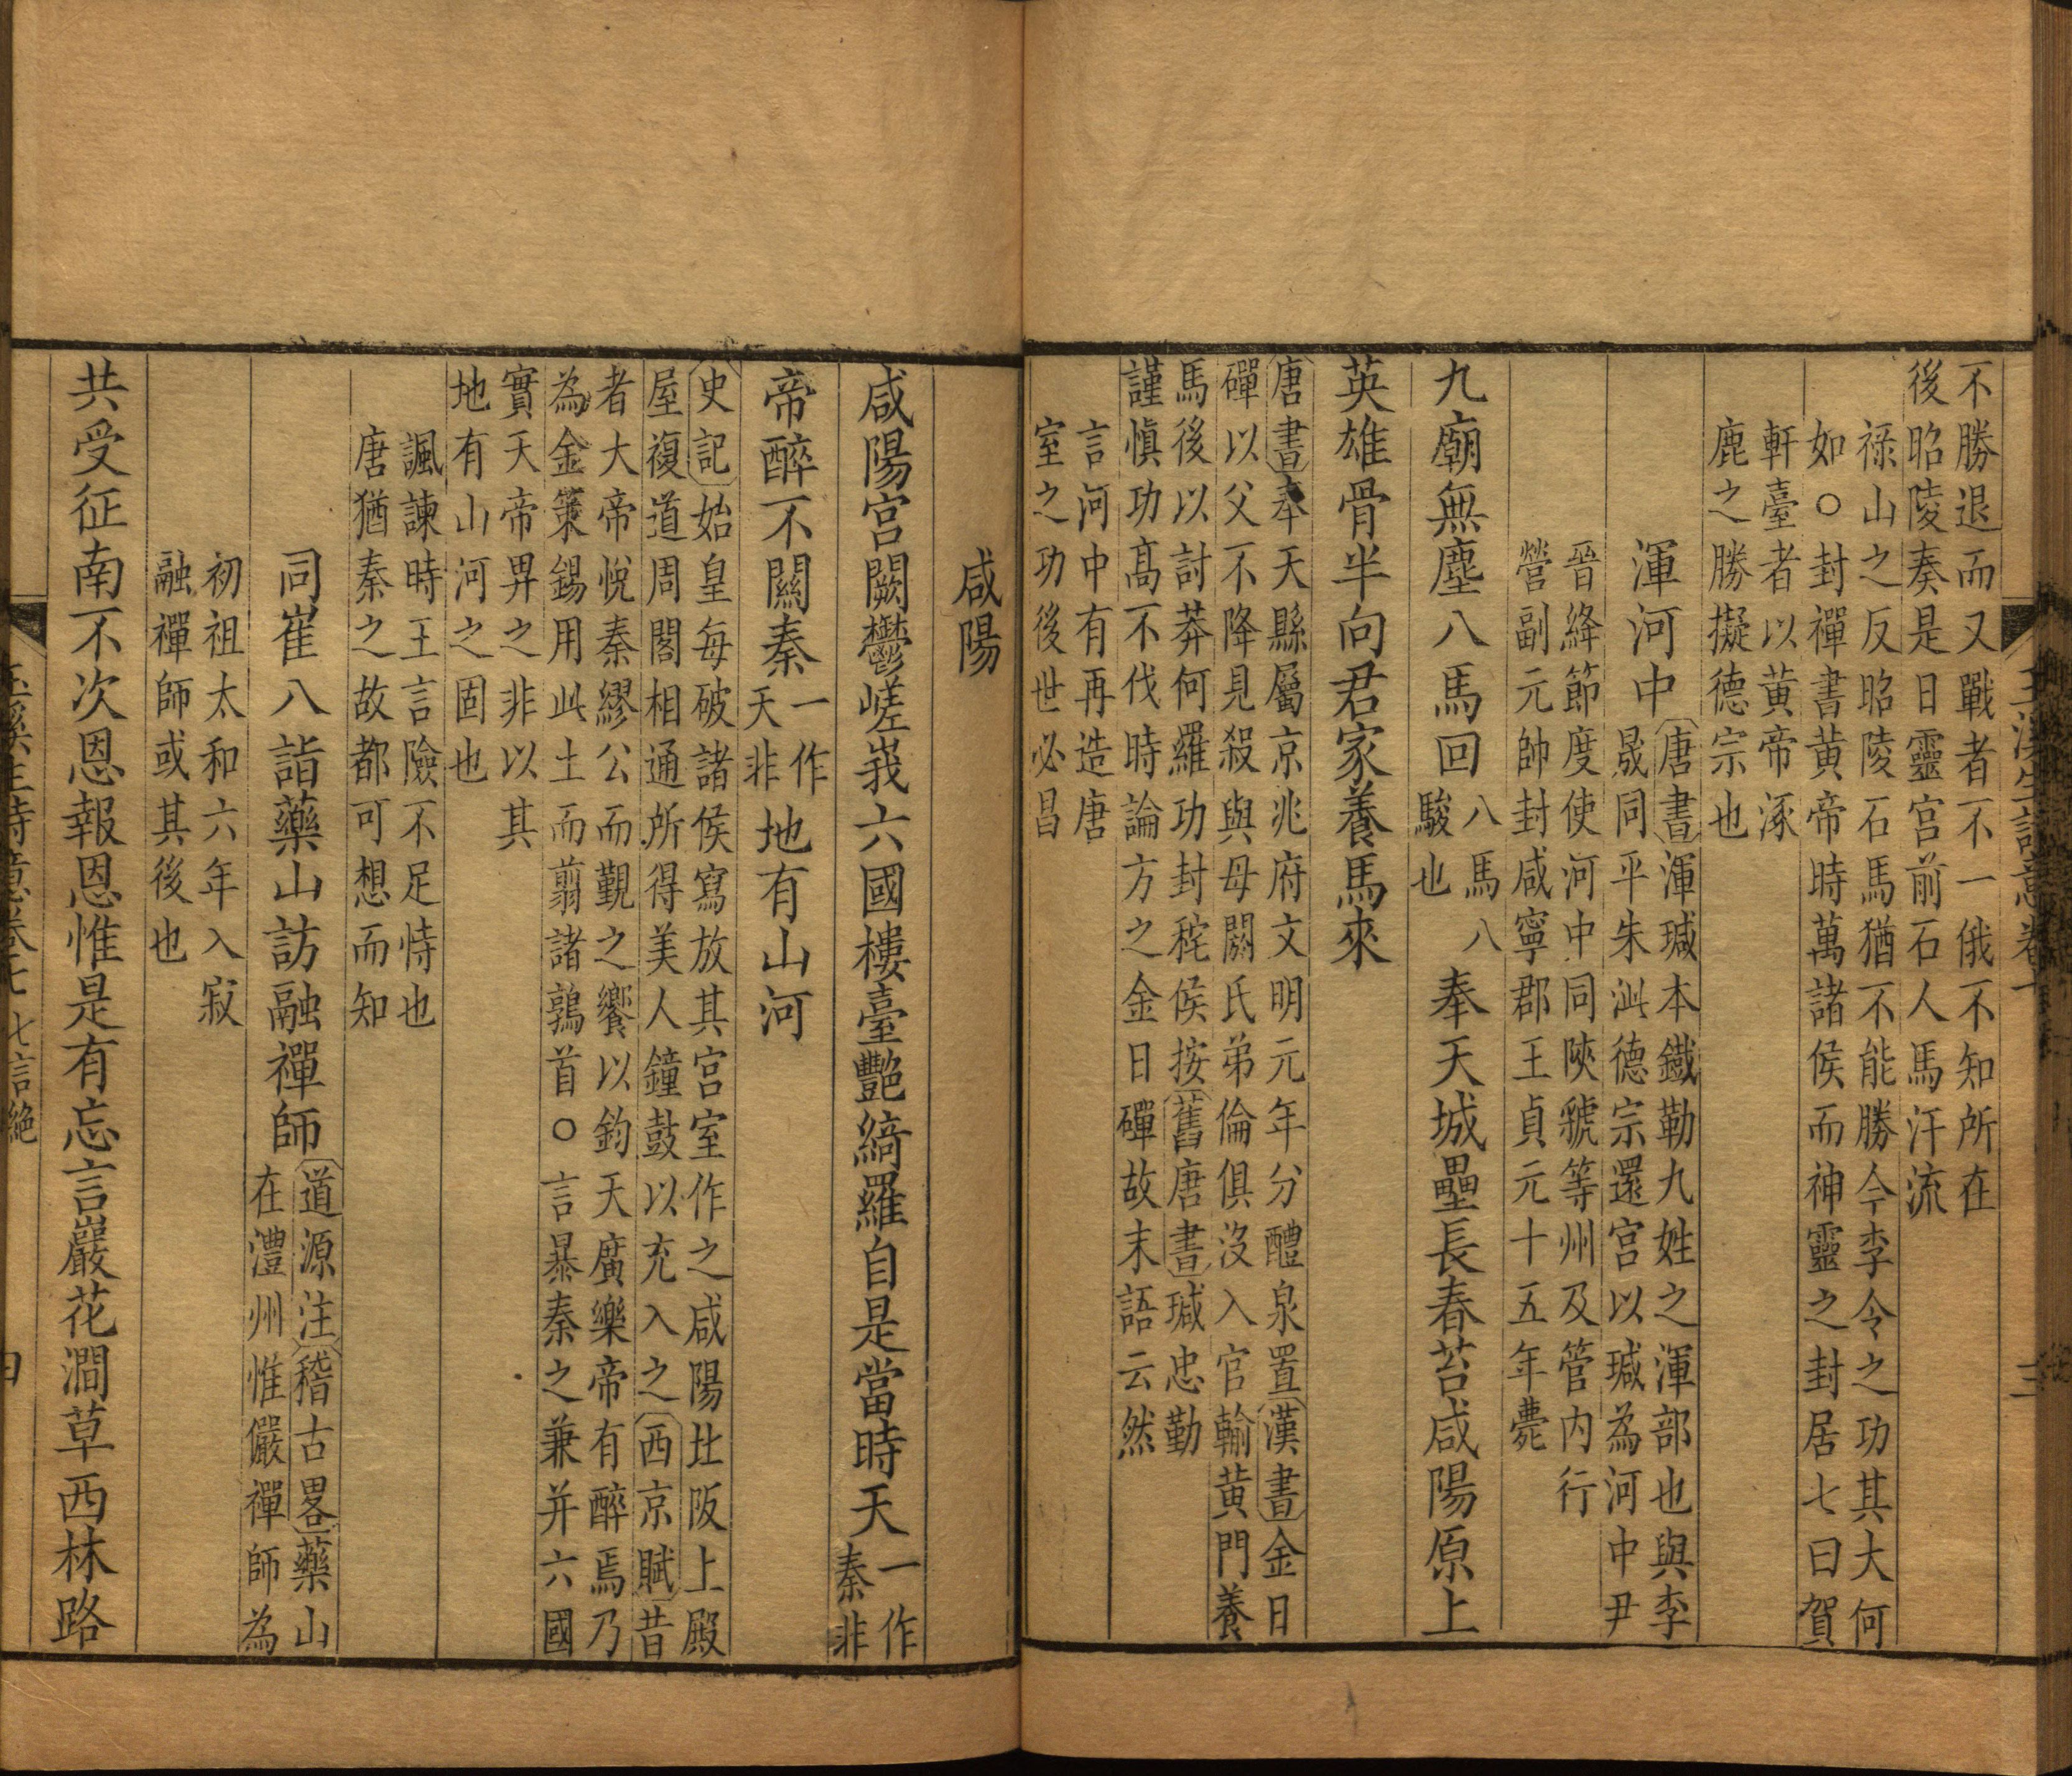 不勝退而又戰者不一俄不知所在
後昭陵奏是日靈宮前石人馬汗流
祿山之反昭陵石馬猶不能勝今李令之功其大何
如○封禪書黃帝時萬諸侯而神靈之封居七曰賀
軒臺者以黃帝涿
鹿之勝擬德宗也
渾河中
唐書渾瑊本鐵勒九姓之渾部也與李
晟同平朱泚德宗還宮以瑊為河中尹
晉絳節度使河中同陝虢等州及管內行
營副元帥封咸寧郡王貞元十五年薨
九廟無塵八馬回
八馬八
駿也
奉天城壘長春苔咸陽原上
英雄骨半向君家養馬來
唐書奉天縣屬京兆府文明元年分醴泉置漢書金日
磾以父不降見殺與母閼氏弟倫俱沒入官輸黃門養
馬後以討莽何羅功封秺侯按舊唐書瑊忠勤
謹愼功高不伐時論方之金日磾故末語云然
言河中有再造唐
室之功後世必昌
咸陽
咸陽宮闕鬱嵯峩六國樓臺艷綺羅自是當時天
一作
秦非
帝醉不關秦
一作
天非
地有山河
史記始皇每破諸侯寫放其宮室作之咸陽北阪上殿
屋複道周閣相通所得美人鐘鼓以充入之西京賦昔
者大帝悅秦繆公而覲之饗以鈞天廣樂帝有醉焉乃
為金策錫用此土而翦諸鶉首○言暴秦之兼并六國
實天帝畀之非以其
地有山河之固也
諷諫時王言險不足恃也
唐猶秦之故都可想而知
同崔八詣藥山訪融禪師
道源注稽古畧藥山
在澧州惟儼禪師為
初祖太和六年入寂
融禪師或其後也
共受征南不次恩報恩惟是有忘言巖花澗草西林路
玉溪生詩意卷七 七言絶